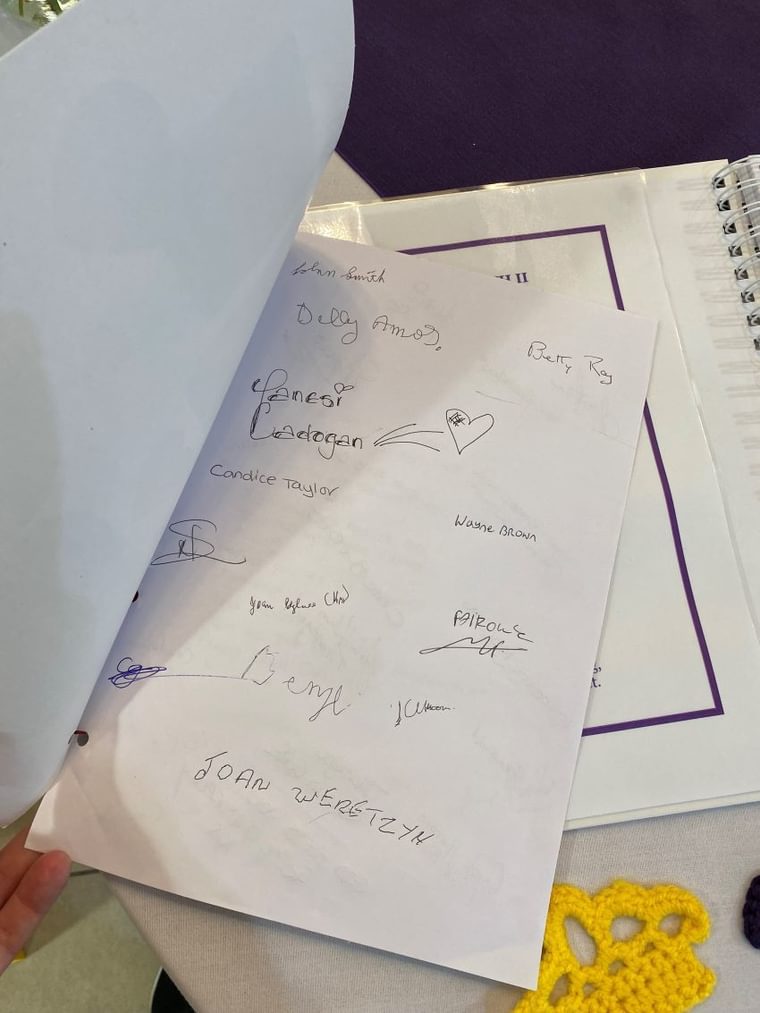 John Smith
Delly Amos.
Betty Ray
Yanesi
Cadogan
Candice Taylor
Wayne Brown
Joan (Mrs)
FAIROUZ
Beryl
JOAN WERETZYN
II